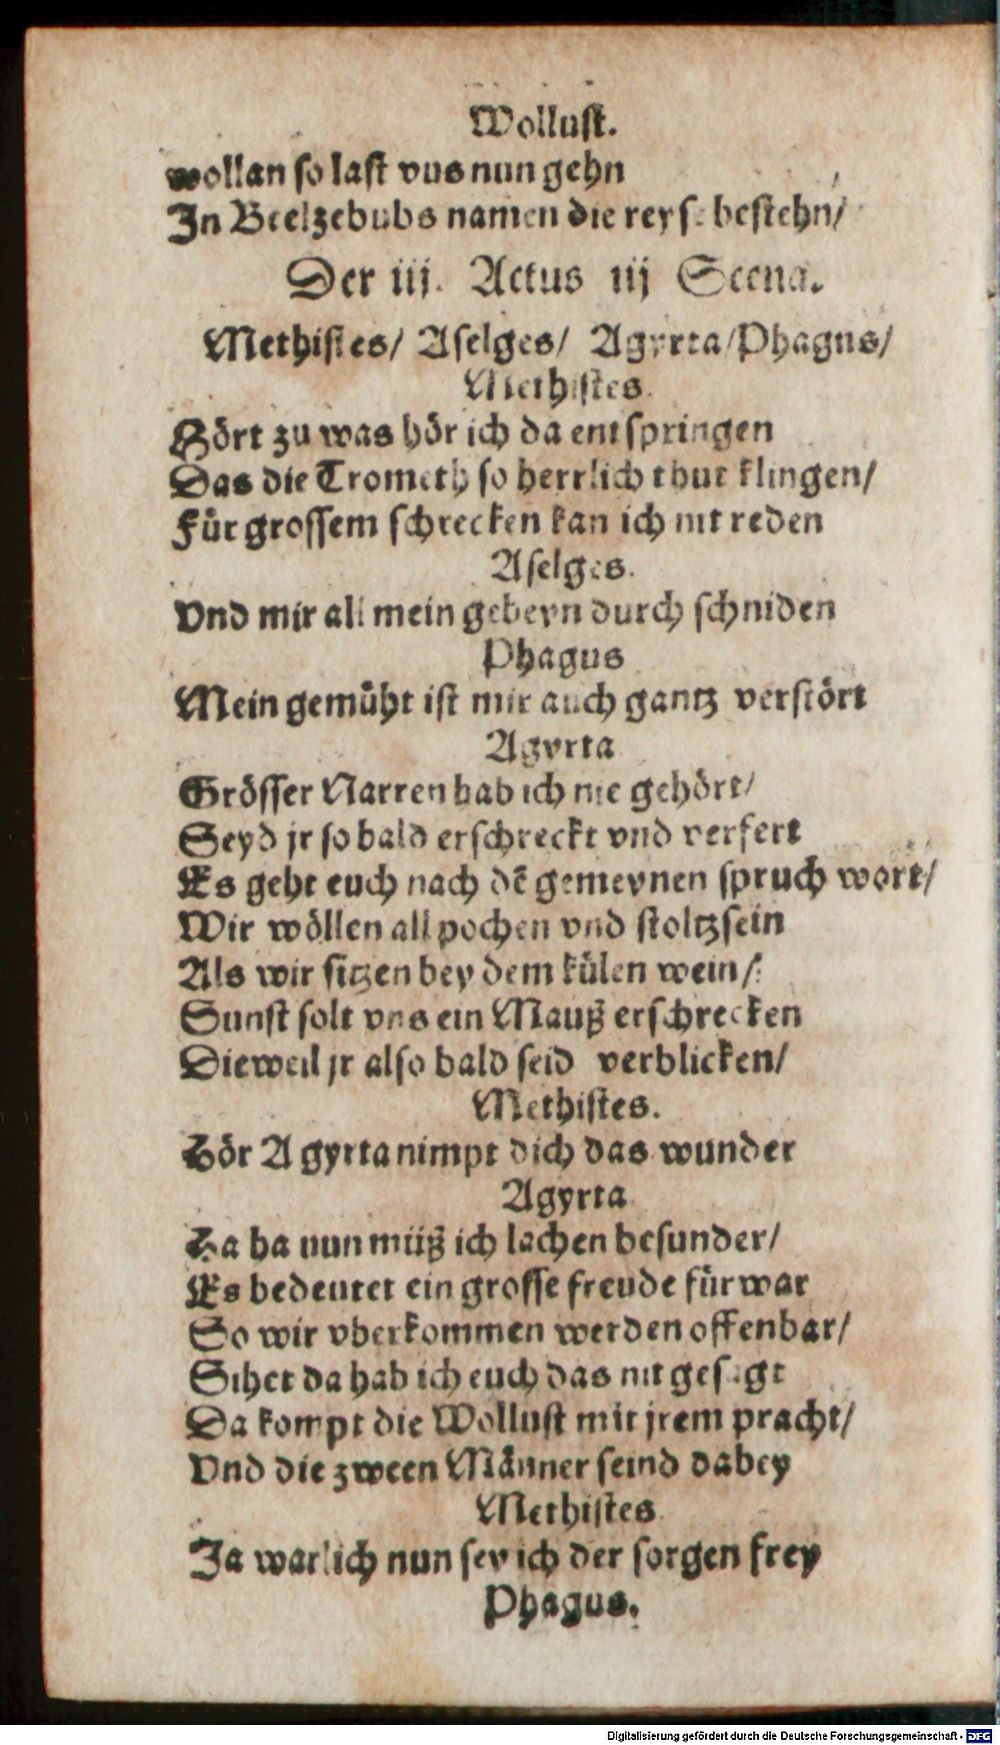 Wollust.
wollan so last vns nun gehn
In Beelzebubs namen die reyse bestehn/
Der iij. Actus iij Scena.
Methistes/ Aselges/ Agyrta/Phagus/
Methistes.
Hört zu was hör ich da entspringen
Das die Trometh so herrlich thut klingen/
Für grossem schrecken kan ich nit reden
Aselges.
Vnd mir all mein gebeyn durch schniden
Phagus
Mein gemüht ist mir auch gantz verstört
Agyrta
Grösser Narren hab ich nie gehört/
Seyd jr so bald erschreckt vnd verfert
Es geht euch nach dē gemeynen spruch wort/
Wir wöllen all pochen vnd stoltz sein
Als wir sitzen bey dem külen wein/
Sunst solt vns ein Mauß erschrecken
Dieweil jr also bald seid verblicken/
Methistes.
Hör Agyrta nimpt dich das wunder
Agyrta
Ha ha nun müß ich lachen besunder/
Es bedeutet ein grosse freude für war
So wir vberkommen werden offenbar/
Sihet da hab ich euch das nit gesagt
Da kompt die Wollust mit jrem pracht/
Vnd die zween Männer seind dabey
Methistes
Ja warlich nun sey ich der sorgen frey
Phagus.
Digitalisierung gefördert durch die Deutsche Forschungsgemeinschaft - DFG